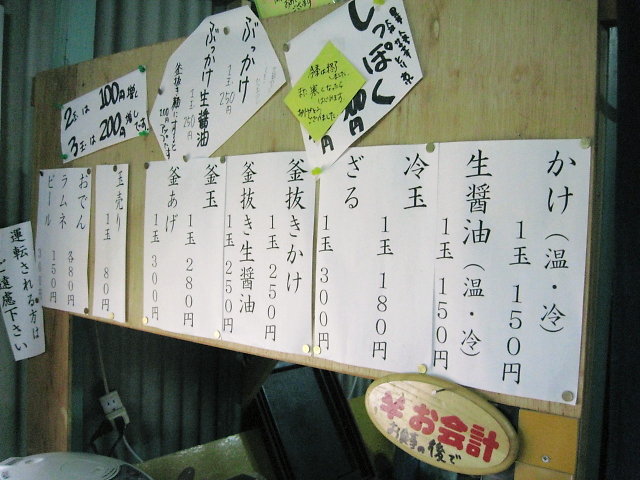 かけ(温・冷)
1玉 150円
生醤油(温・冷)
1玉 150円
冷玉
1玉 180円
ざる
1玉 300円
釜抜きかけ
1玉 250円
釜抜き生醤油
1玉 250円
釜玉
1玉 280円
釜あげ
1玉 300円
玉売り
1玉 80円
おでん
各80円
ラムネ
150円
ビール
運転される方は
ご遠慮下さい
しっぽく
円
ぶっかけ
1玉 250円
ぶっかけ生醤油
1玉 250円
2玉は 100円増し
3玉は 200円増しです
¥お会計
お食事の後で